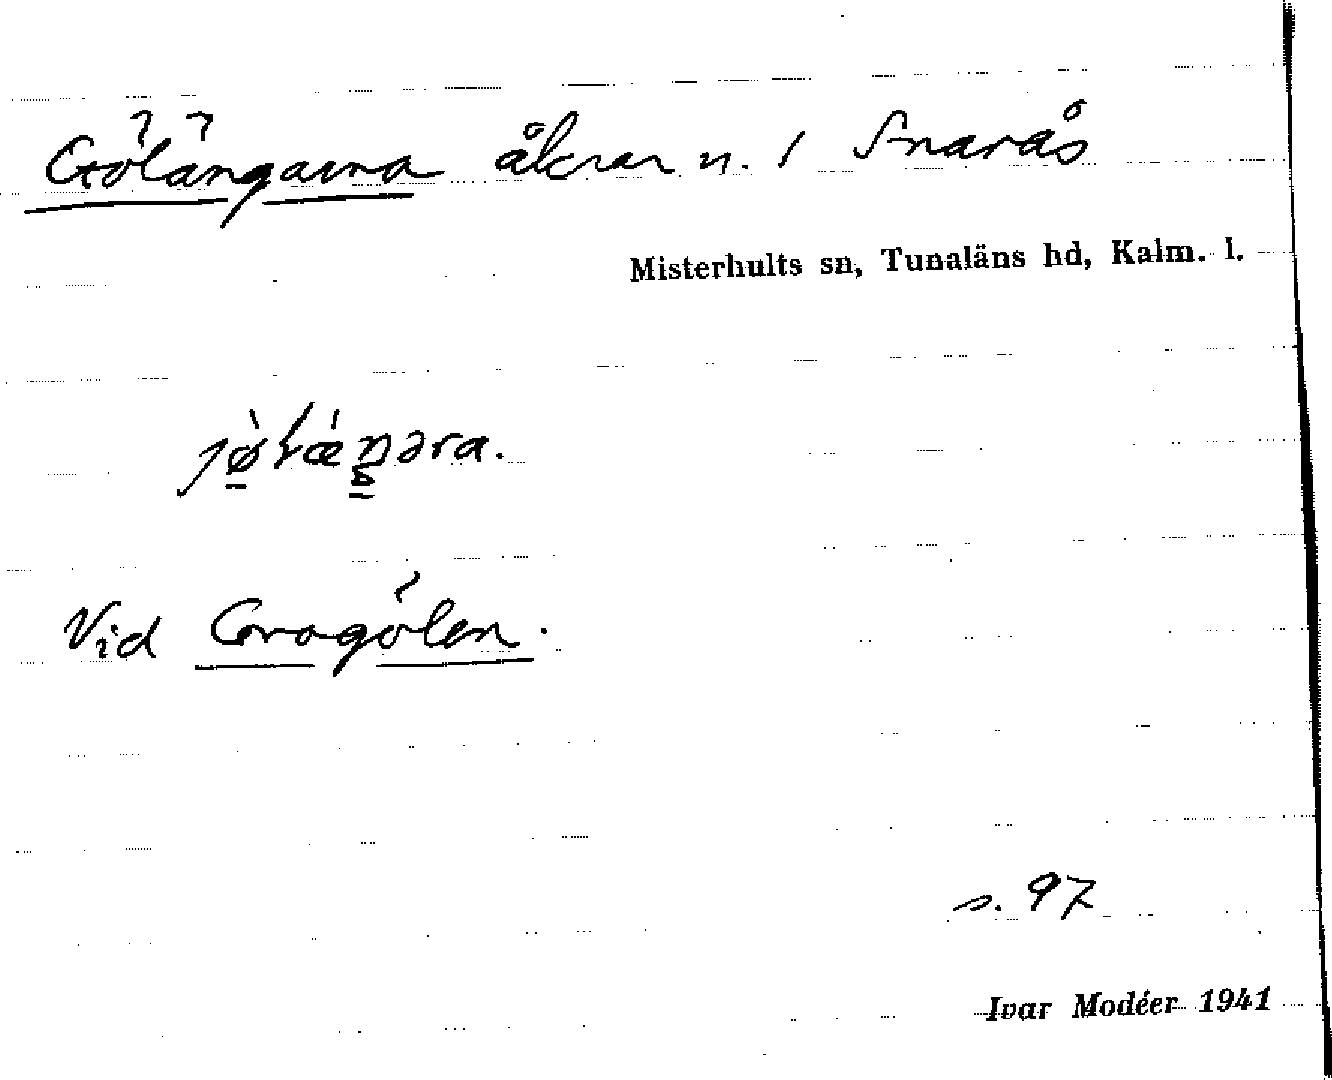 Gölängarna åkrar n. 1 Snarås
Misterhults sn, Tunaläns hd, Kalm. l.
Vid Grogölen.
s. 97
Ivar Modéer 1941